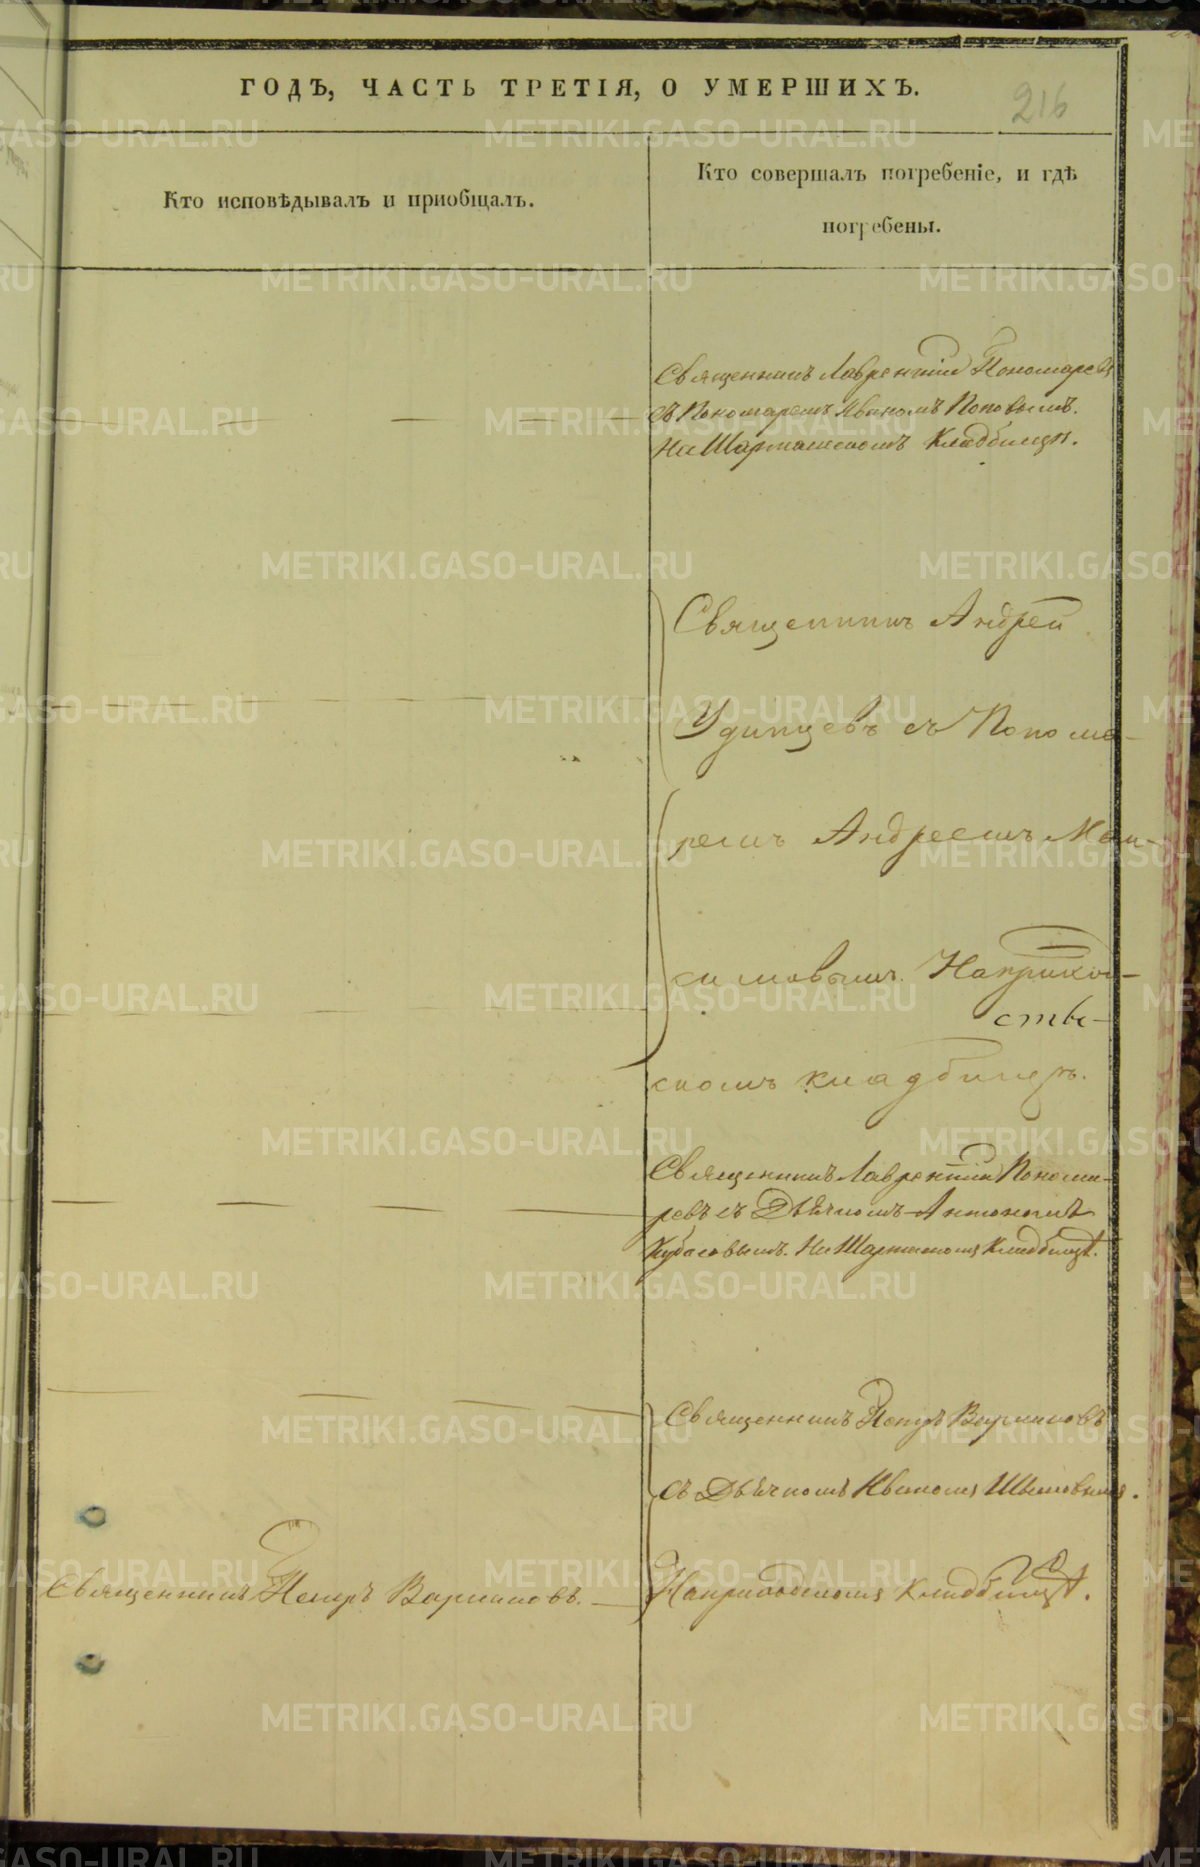 ГОДЪ, ЧАСТЬ ТРЕТІЯ, О УМЕРШИХЪ.
216
Кто исповѣдывалъ и пріобщалъ.
Кто совершалъ погребеніе, и гдѣ
погребены.
Священникъ Лаврентій Пономаревъ
съ Пономаремъ Иваномъ Поповымъ.
На Шарташскомъ Кладбищѣ.
Священникъ Андрей
Удинцевъ съ Понома-
ремъ Андреемъ Мак-
симовымъ. На приход-
ств-
скомъ кладбищѣ.
Священникъ Лаврентій Понома-
ревъ съ Дьячкомъ Антономъ
Кубасовымъ. На Шарташскомъ Кладбищѣ.
Священникъ Петръ
съ Дьячкомъ Иваномъ
Священникъ Петръ
На приходскомъ Кладбищѣ.
METRIKI.GASO-URAL.RU